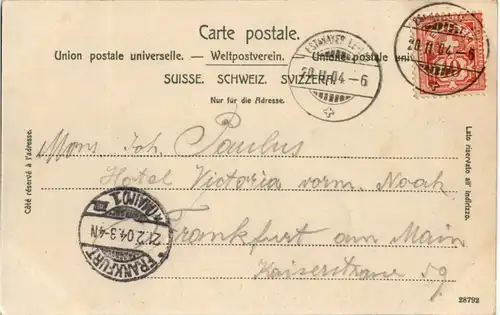 Carte postale.
Union postale universelle. — Weltpostverein. — Unione postale uni
SUISSE. SCHWEIZ. SVIZZERA.
Nur für die Adresse.
ESTAVAYER
20.II.04.–6
20.II.04.
Côté réservé à l'adresse.
Lato riservato all' indirizzo.
Mons. Joh. Paulus
Hotel Victoria vorm. Noah
Frankfurt am Main
Kaiserstrasse 59
FRANKFURT
(MAIN) 1
21.2.04.3-4N
28792